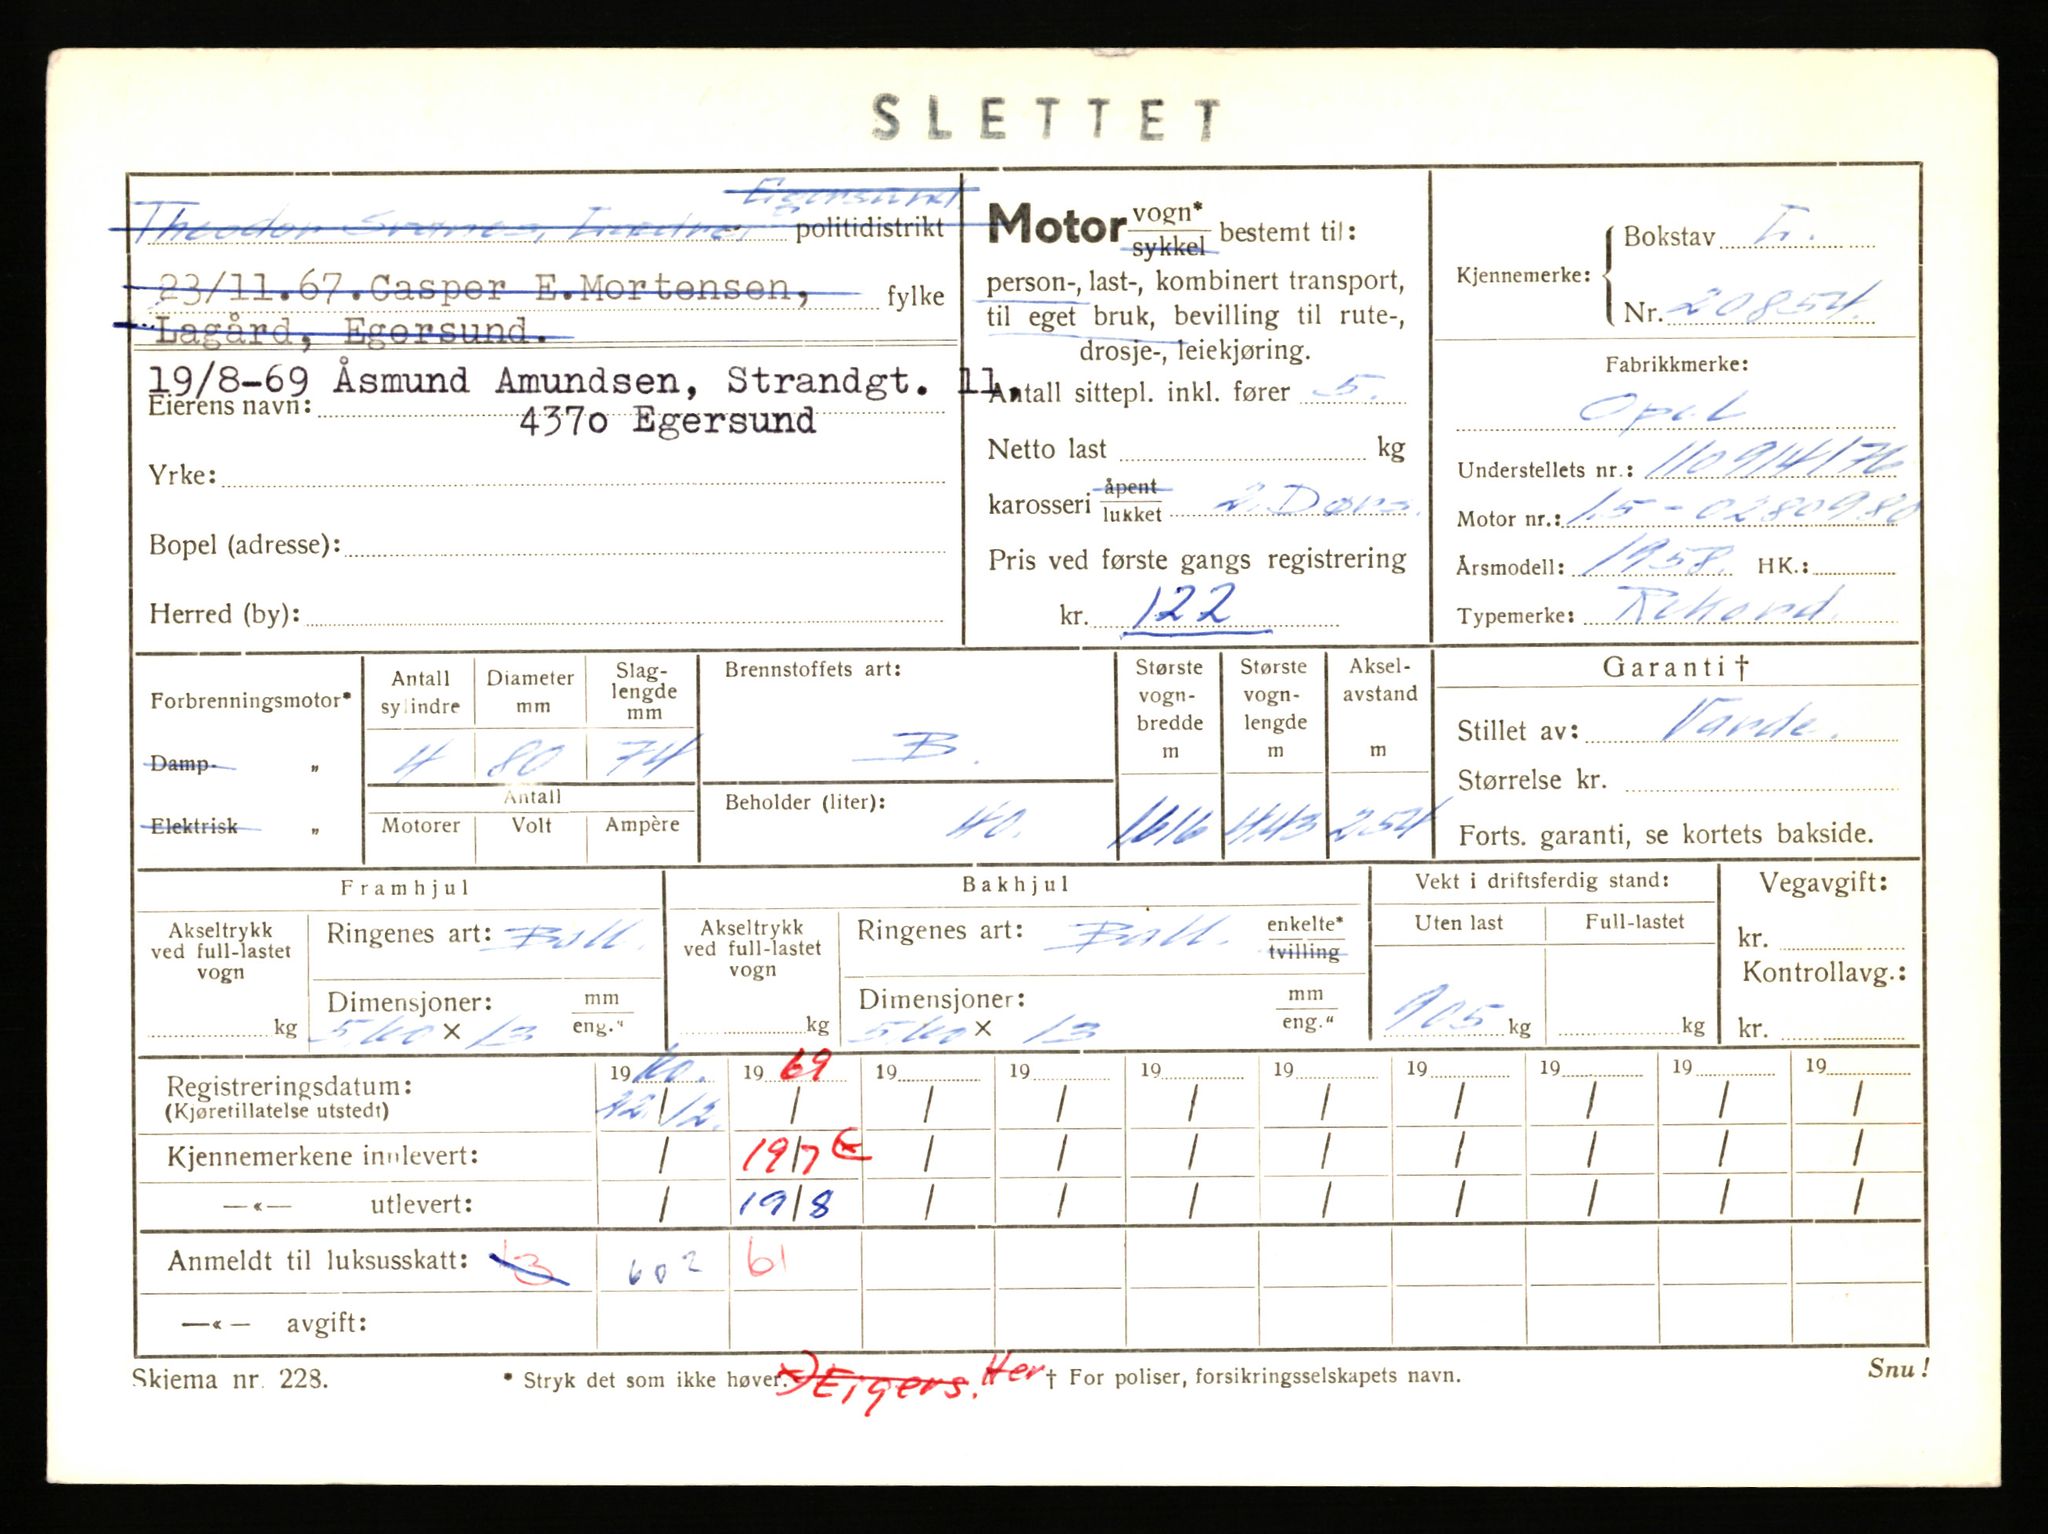 SLETTET
Egersund
Theodor politidistrikt
23/11.67. Casper E. Mortensen, fylke
Lagård, Egersund.
19/8-69 Åsmund Amundsen, Strandgt. 11.
Eierens navn:
4370 Egersund
Yrke:
Bopel (adresse):
Herred (by):
Motor vogn* sykkel bestemt til:
person-, last-, kombinert transport,
til eget bruk, bevilling til rute-,
drosje-, leiekjøring.
Antall sittepl. inkl. fører 5.
Netto last kg
karosseri åpent lukket 2. Dørs.
Pris ved første gangs registrering
kr. 122
Kjennemerke: Bokstav L.
Nr. 20854.
Fabrikkmerke:
Opel
Understellets nr.: 110914176
Motor nr.: 1.5-0280980
Årsmodell: 1958. HK.:
Typemerke: Rekord.
Forbrenningsmotor*
Damp- „
Elektrisk „
Antall sylindre
Diameter mm
Slag-lengde mm
4 80 74
Antall
Motorer Volt Ampère
Brennstoffets art:
B.
Beholder (liter):
40.
Største vogn-bredde m
Største vogn-lengde m
Aksel-avstand m
1616 443 254
Garanti †
Stillet av: Varde.
Størrelse kr.
Forts. garanti, se kortets bakside.
Framhjul
Akseltrykk ved full-lastet vogn
kg
Ringenes art: Ball.
Dimensjoner: mm eng."
5.60 x 13
Bakhjul
Akseltrykk ved full-lastet vogn
kg
Ringenes art: Ball. enkelte* tvilling
Dimensjoner: mm eng."
5.60 x 13
Vekt i driftsferdig stand:
Uten last Full-lastet
905 kg kg
Vegavgift:
kr.
Kontrollavg.:
kr.
Registreringsdatum: 1960. 1969 19 19 19 19 19 19 19 19
(Kjøretillatelse utstedt) 22/12. / / / / / / / / /
Kjennemerkene innlevert: / 19/7 / / / / / / / /
—«— utlevert: / 19/8 / / / / / / / /
Anmeldt til luksusskatt: 13 602 61
—«— avgift:
Skjema nr. 228. * Stryk det som ikke høver. x) Eigers. Her † For poliser, forsikringsselskapets navn. Snu!